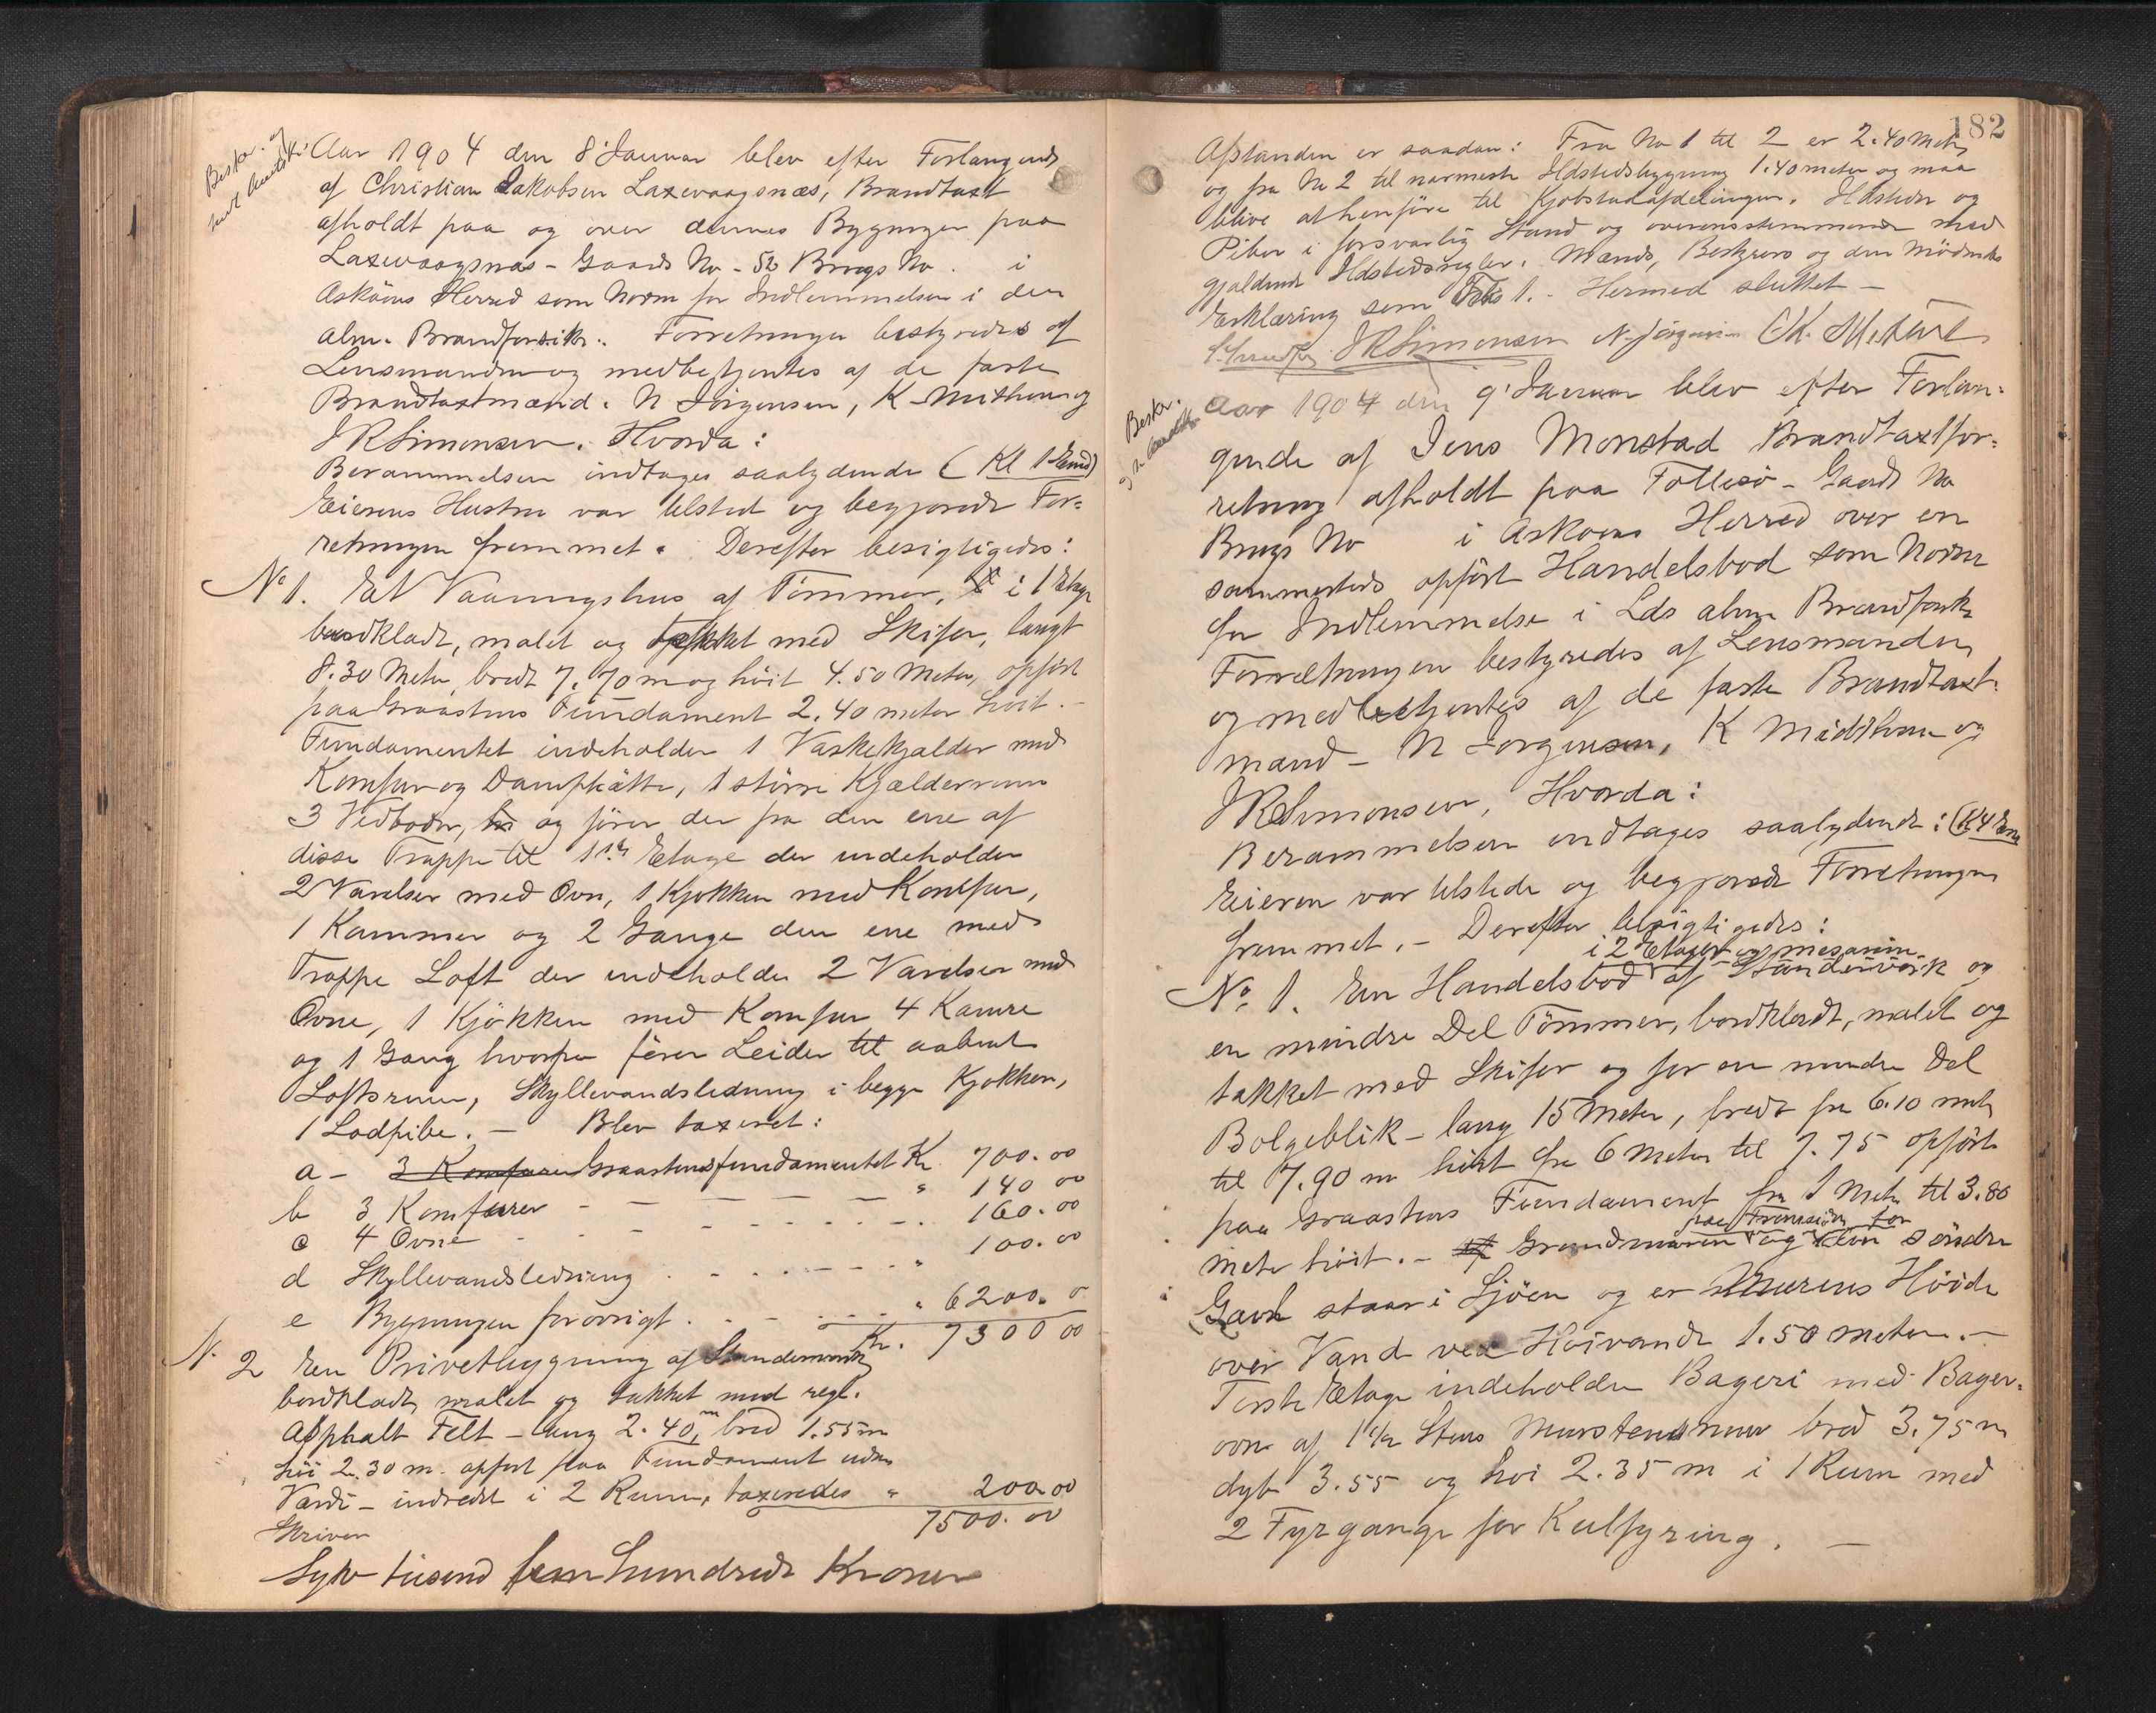 Beskr. og
Aar 1904 den 8' Januar blev efter Forlangende
af Christian Jakobsen Laxevaagsnæs, Brandtaxt
afholdt paa og over dennes Bygninger paa
Laxevaagsnæs - Gaards No - 52 Brugs No . i
Askøens Herred som Norm for Indlemmelsen i den
alm. Brandforsikr. Forretningen bestyredes af
Lensmanden og medbetjentes af de faste
Brandtaxtmænd. N Jörgensen, K Midthun og
J R Simonsen. Hvorda:
Berammelsen indtages saalydende (Kl 1 Emd)
Eierens Hustru var tilsted og begjærede For=
retningen fremmet. Derefter besigtigedes:
No 1. Et Vaaningshus af Tömmer, i 1 Etage
bordklædt, malet og tækket med Skifer, langt
8.30 Meter, bredt 7.70 m og høit 4.50 Meter, opført
paa Graastens Fundament 2.40 meter høit. -
Fundamentet indeholder 1 Vaskekjælder med
Komfur og Dampkjætte, 1 større Kjælderrum
3 Vedboder, og fører der fra den ene af
disse Trappe til 1ste Etage der indeholder
2 Værelser med Ovn, 1 Kjøkken med Komfur,
1 Kammer og 2 Gange den ene med
Trappe Loft der indeholder 2 Værelser med
Ovne, 1 Kjökken med Komfur 4 Kamre
og 1 Gang hvorfra fører Leider til aabent
Loftsrum, Skyllevandsledning i begge Kjøkken,
1 Lodpibe. - Blev taxeret:
a - 3 Komfurer Graastensfundamentet Kr. 700.00
b 3 Komfurer - - - - " 140 00
c 4 Ovne - - - - 160.00
d Skyllevandsledning . - - - " 100.00
e Bygningen forøvrigt . - - - " 6200. 0
Kr. 7300 00
N. 2 En Privetbygning af Standerverk
bordklædt, malet og tækket med regl.
Asphalt Felt - lang 2.40 m, bred 1.55 m
høi 2.30 m. opført paa Fundament uden
Værdi - indredet i 2 Rum, taxeredes " 200.00
7500.00
Skriver
Syv tusend fem hundrede Kroner
182
Afstanden er saadan: Fra No 1 til 2 er 2.40 Meter
og fra No 2 til nærmeste Ildstedsbygning 1.40 meter og maa
blive at henføre til Kjøbstadafdelingen. Ildsteder og
Piber i forsvarlig Stand og overensstemmende med
gjældende Ildstedsregler. Mænds, Beskrivers og den Mødendes
Erklæring som Fols 1. - Hermed sluttet -
J R Simonsen N. Jörgensen K. Midtun
Beskr.
Aar 1904 den 9' Januar blev efter Forlan=
gende af Jens Monstad Brandtaxtfor=
retning afholdt paa Follesø - Gaards No
Brugs No i Askøens Herred over en
sammesteds opført Handelsbod som Norm
for Indlemmelse i Lds alm Brandforsk.
Forretningen bestyredes af Lensmanden
og medbetjentes af de faste Brandtaxt=
mænd - N Jørgensen, K Midthun og
J R Simonsen, Hvorda:
Berammelsen indtages saalydende: (Kl 4 Em
Eieren var tilstede og begjærede Forretningen
fremmet. - Derefter besigtigedes:
i 2 Etager og mesanin
No 1. En Handelsbod af Standerværk og
en mindre Del Tömmer, bordklædt, malet og
tækket med Skifer og for en mindre Del
Bølgeblik - lang 15 Meter, bredt fra 6.10 meter
til 7.90 m høit fra 6 Meter til 7.75 opført
paa Graastens Fundament fra 1 Meter til 3.80
meter høit. - Grundmuren og den søndre
Gavl staar i Sjøen og er Murens Høide
over Vand ved Høivande 1.50 meter. -
Første Etage indeholder Bageri med Bager=
ovn af 1 1/2 Stens Murstensmur bred 3.75 m
dyb 3.55 og høi 2.35 m i 1 Rum med
2 Fyrgange for Kulfyring. -